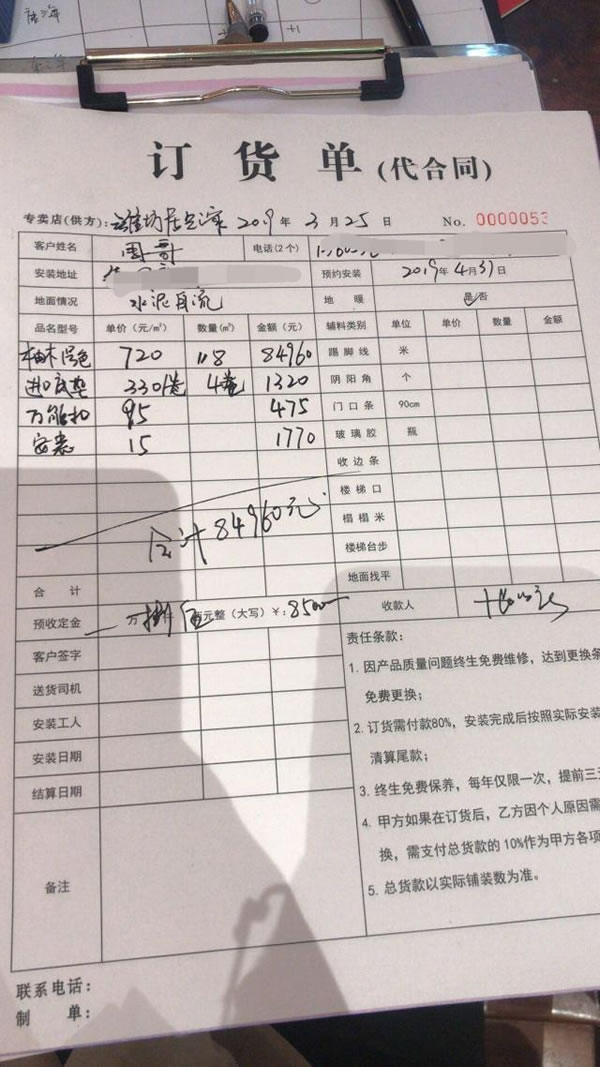 订货单(代合同)
专卖店(供方): 潍坊居 2019年3月25日 No. 0000053
客户姓名 周哥 电话(2个)
安装地址 预约安装 2019年4月31日
地面情况 水泥自流 地暖 是/否
品名型号 单价(元/㎡) 数量(㎡) 金额(元) 辅料类别 单位 单价 数量 金额
柚木 色 720 118 84960 踢脚线 米
进口底垫 330/卷 4卷 1320 阴阳角 个
万能扣 95 475 门口条 90cm
安装 15 1770 玻璃胶 瓶
收边条
楼梯口
合计84960元
榻榻米
楼梯台步
合计 地面找平
预收定金 万 捌 仟 伍 百元整(大写)¥:8500 收款人
客户签字 责任条款:
送货司机 1. 因产品质量问题终生免费维修，达到更换条
免费更换;
安装工人 2. 订货需付款80%，安装完成后按照实际安装
安装日期 清算尾款;
结算日期 3. 终生免费保养，每年仅限一次，提前三
4. 甲方如果在订货后，乙方因个人原因需
换，需支付总货款的10%作为甲方各项
备注 5. 总货款以实际铺装数为准。
联系电话:
制单: